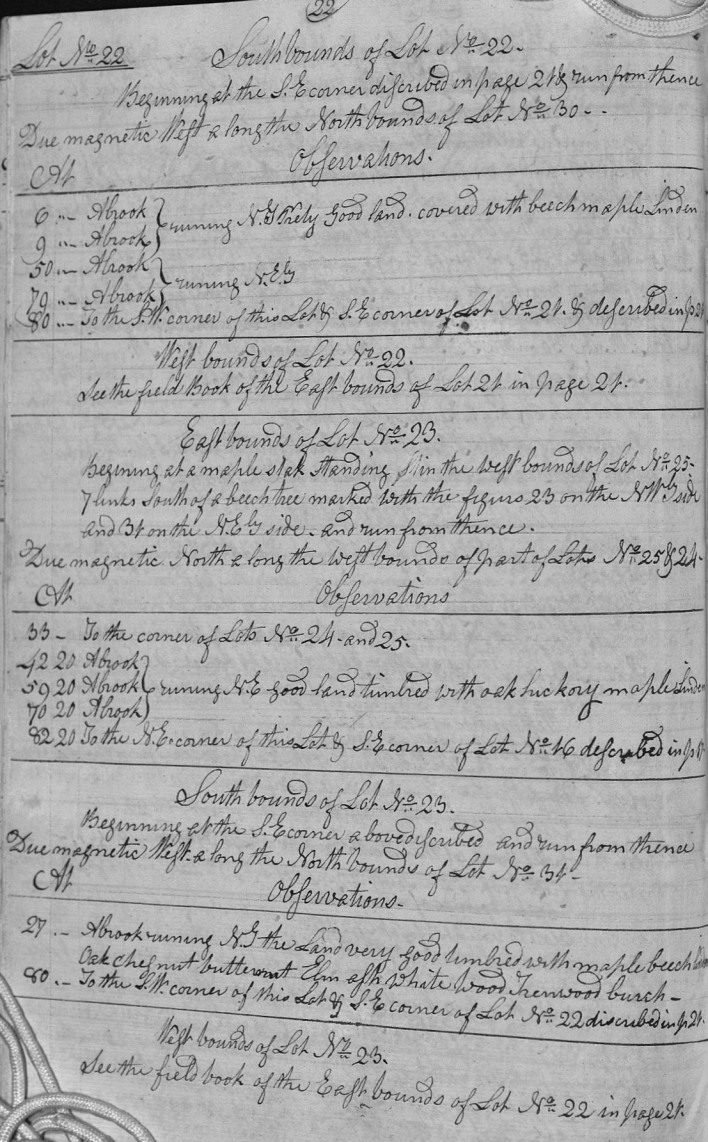 22
Lot No 22 South bounds of Lot No 22.
Beginning at the S. E corner discribed in page 21 & run from thence
Due magnetic West a long the North bounds of Lot No 30 -
At Observations.
6 " Abrook
9 " Abrook running N. good land. covered with beech maple Linden
50 " Abrook
79 " Abrook runing N.E.ly
80 " To the S.W. corner of this Lot & S. E corner of Lot No 21. & described in p 21
West bounds of Lot No 22.
See the field Book of the East bounds of Lot 21 in page 21.
East bounds of Lot No 23.
Begining at a maple stak standing in the west bounds of Lot No 25-
7 links South of a beech tree marked with the figurs 23 on the N W ly side
and 31 on the N. E ly side. and run from thence.
Due magnetic North a long the West bounds of part of Lots No 25 & 24-
At Observations
33 - To the corner of Lots No 24. and 25.
42 20 Abrook
59 20 Abrook running N. E good land timbred with oak huckory maple Linden
70 20 Abrook
82 20 To the N. E. corner of this Lot & S. E corner of Lot No 16 described in p
South bounds of Lot No 23.
Beginning at the S. E corner a bove discribed and run from thence
Due magnetic West a long the North bounds of Lot No 31-
At Observations.
27 .- Abrook runing N. ly the Land very good timbred with maple beech
Oak chesnut butternut Elm ash White wood Irenwood burch-
80 .- To the S. W. corner of this Lot & S. E corner of Lot No 22 discribed in p 21.
West bounds of Lot No 23.
See the field book of the East bounds of Lot No 22 in page 21.